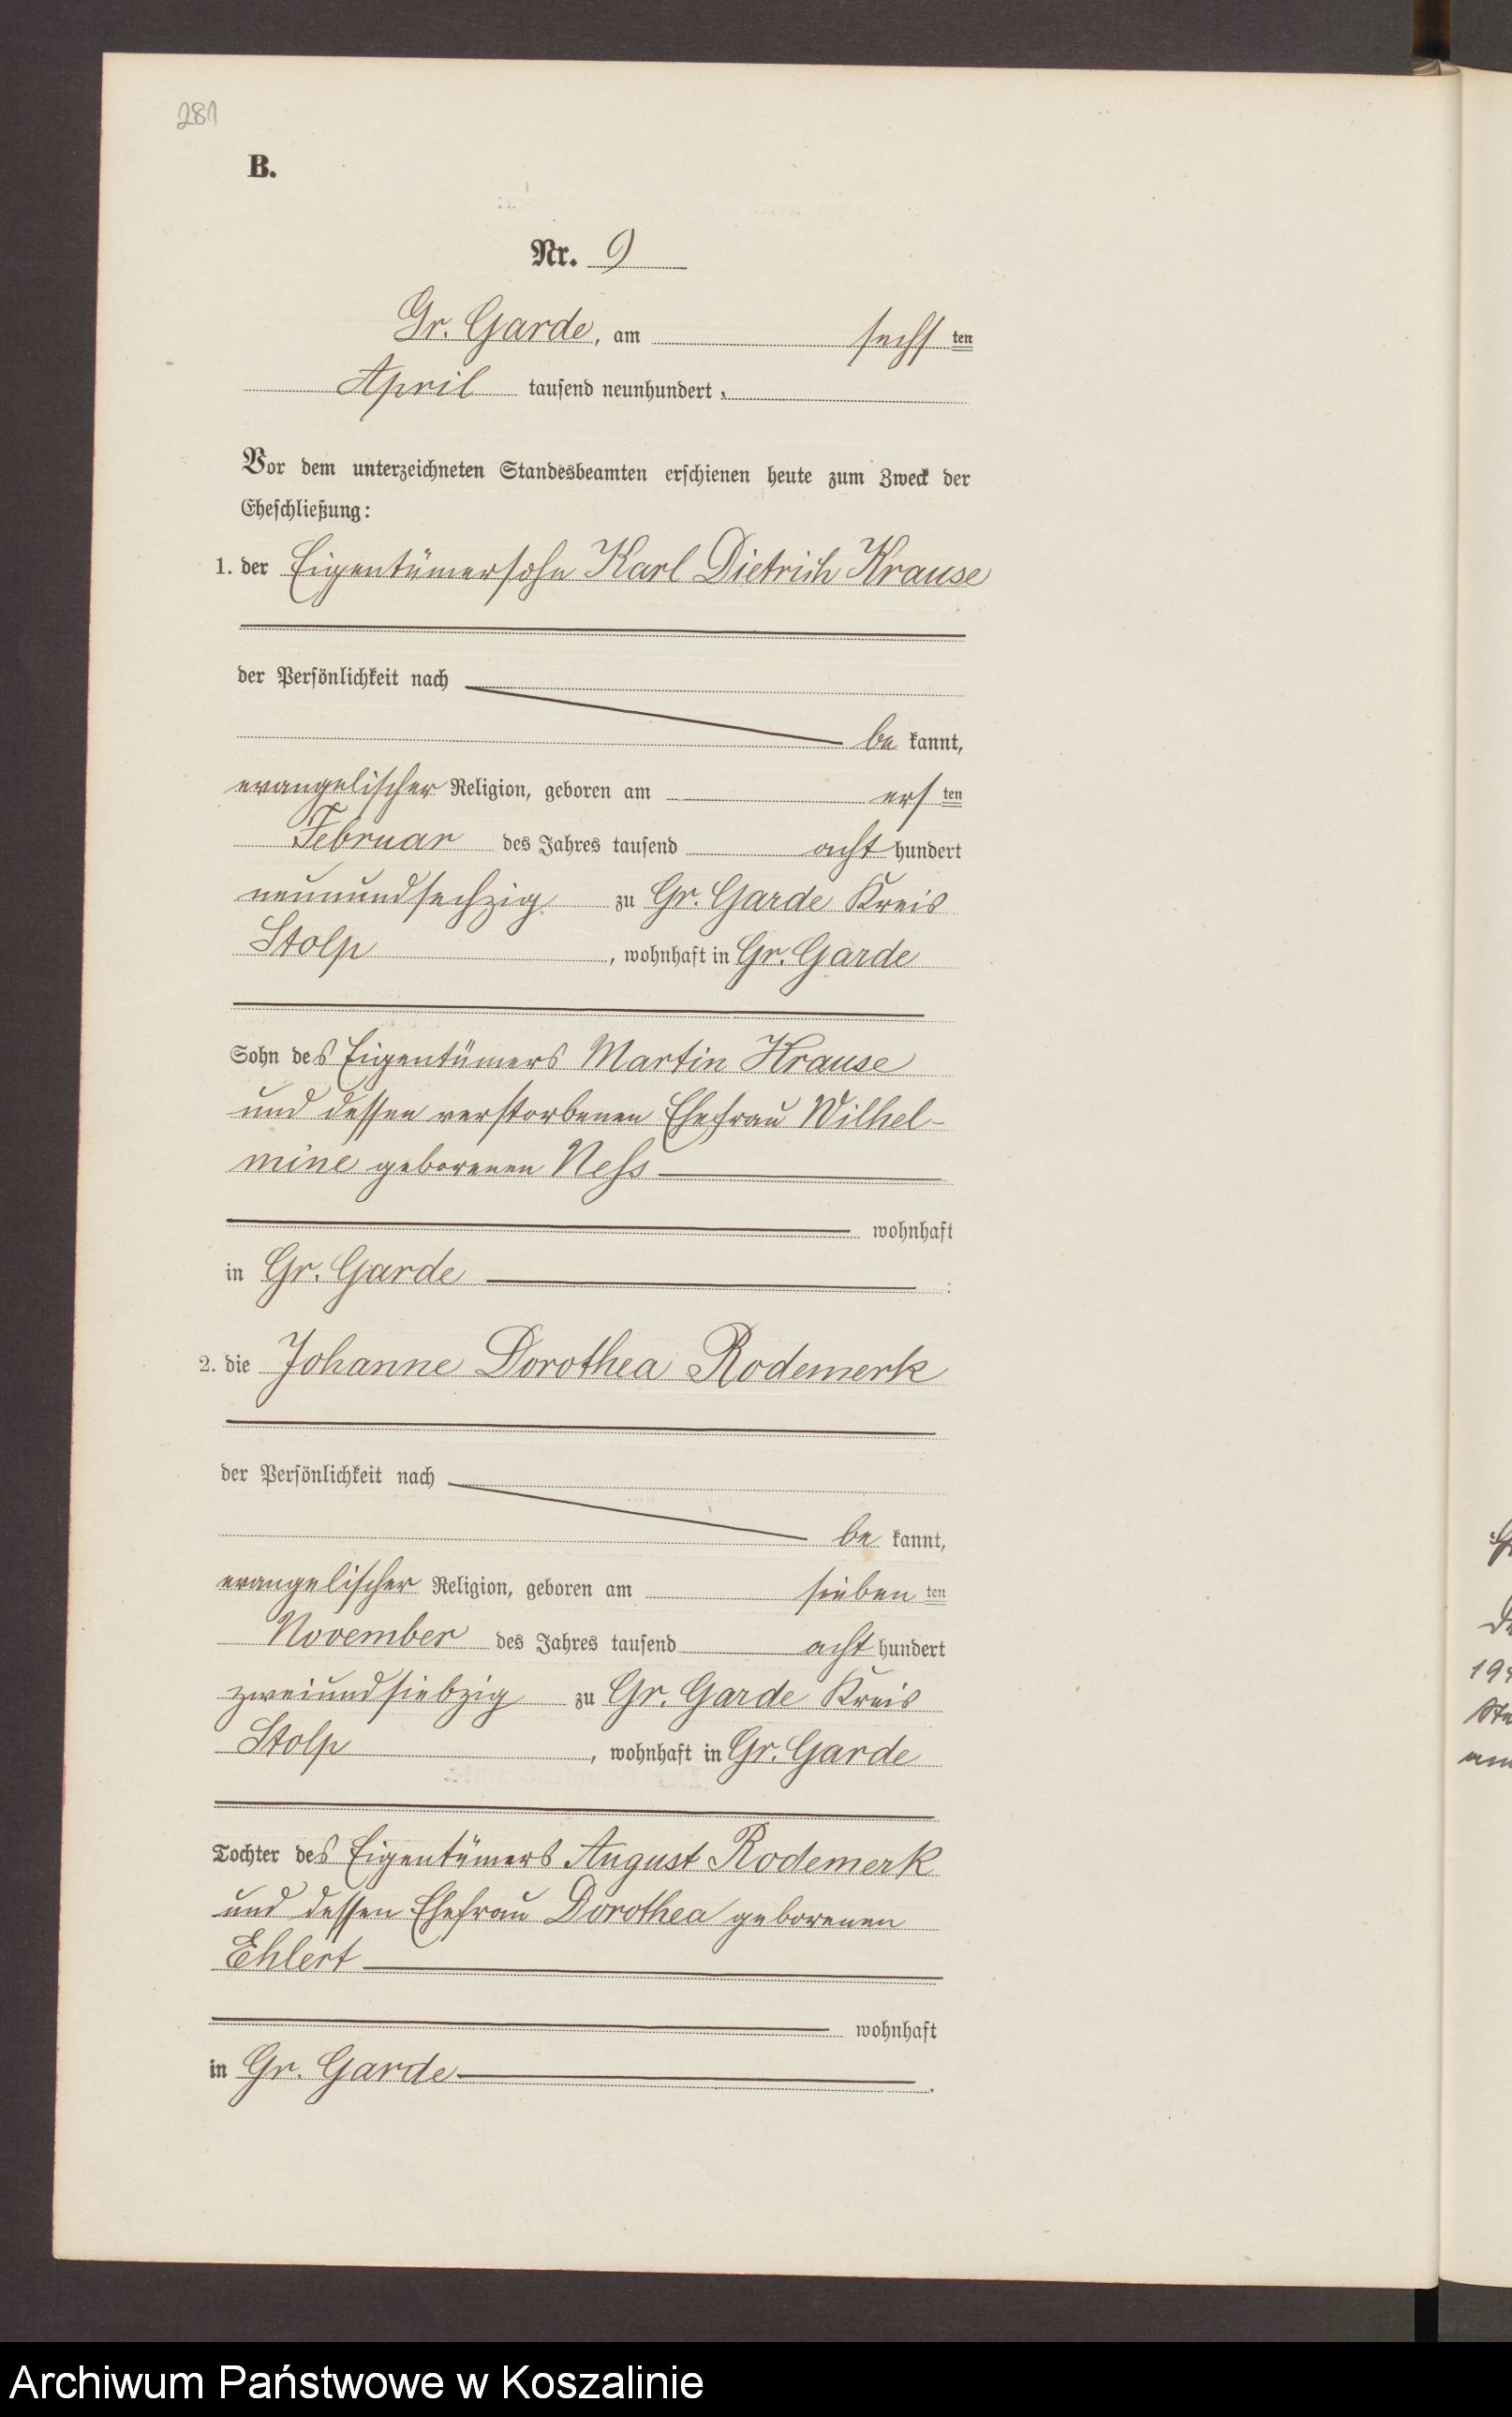 281
B.
Nr. 9
Gr. Garde, am sechs ten
April tausend neunhundert.
Vor dem unterzeichneten Standesbeamten erschienen heute zum Zweck der
Eheschließung:
1. der Eigentümersohn Karl Dietrich Krause
der Persönlichkeit nach
be kannt,
evangelischer Religion, geboren am ers ten
Februar des Jahres tausend acht hundert
neunundsechzig zu Gr. Garde Kreis
Stolp, wohnhaft in Gr. Garde
Sohn des Eigentümers Martin Krause
und dessen verstorbenen Ehefrau Wilhel-
mine geborenen Ness
wohnhaft
in Gr. Garde :
2. die Johanne Dorothea Rodemerk
der Persönlichkeit nach
be kannt,
evangelischer Religion, geboren am sieben ten
November des Jahres tausend acht hundert
zweiundsiebzig zu Gr. Garde Kreis
Stolp, wohnhaft in Gr. Garde
Tochter des Eigentümers August Rodemerk
und dessen Ehefrau Dorothea geborenen
Ehlert
wohnhaft
in Gr. Garde.
Archiwum Państwowe w Koszalinie